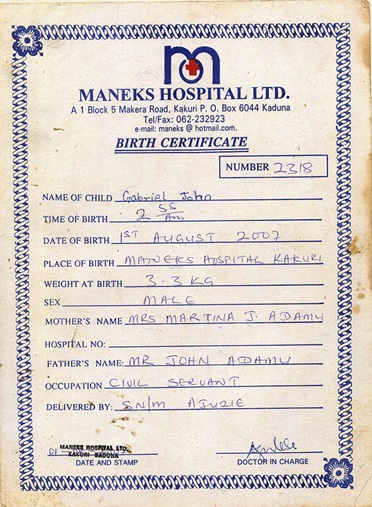 MANEKS HOSPITAL LTD.
A 1 Block 5 Makera Road, Kakuri P. O. Box 6044 Kaduna
Tel/Fax: 062-232923
e-mail: maneks @ hotmail.com.
BIRTH CERTIFICATE
NUMBER 2318
NAME OF CHILD Gabriel John
TIME OF BIRTH 2 55 Am
DATE OF BIRTH 1ST AUGUST 2007
PLACE OF BIRTH MANEKS HOSPITAL KAKURI
WEIGHT AT BIRTH 3.3 KG
SEX MALE
MOTHER'S NAME MRS MARTINA J. ADAMU
HOSPITAL NO:
FATHER'S NAME: MR JOHN ADAMU
OCCUPATION CIVIL SERVANT
DELIVERED BY: SN/M AJUZIE
MANEKS HOSPITAL LTD.
KAKURI KADUNA
DATE AND STAMP
DOCTOR IN CHARGE